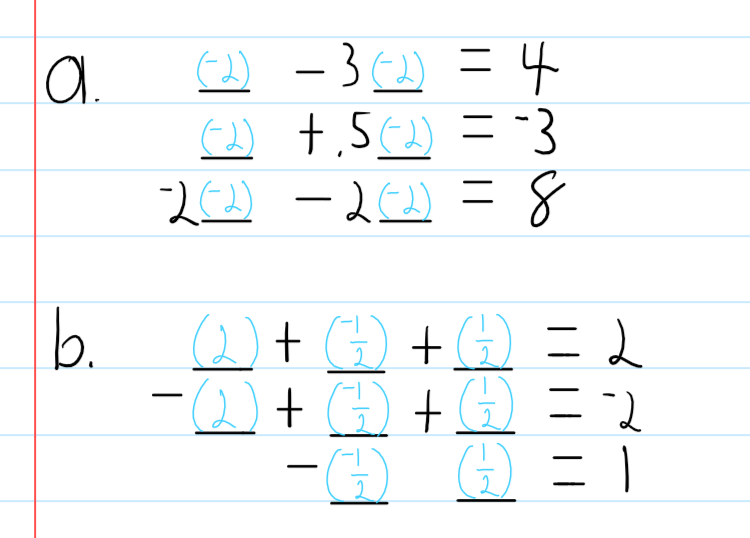 a. (-2) - 3(-2) = 4
(-2) + .5(-2) = -3
-2(-2) - 2(-2) = 8
b. (2) + (-1/2) + (1/2) = 2
-(2) + (-1/2) + (1/2) = -2
-(-1/2) (1/2) = 1